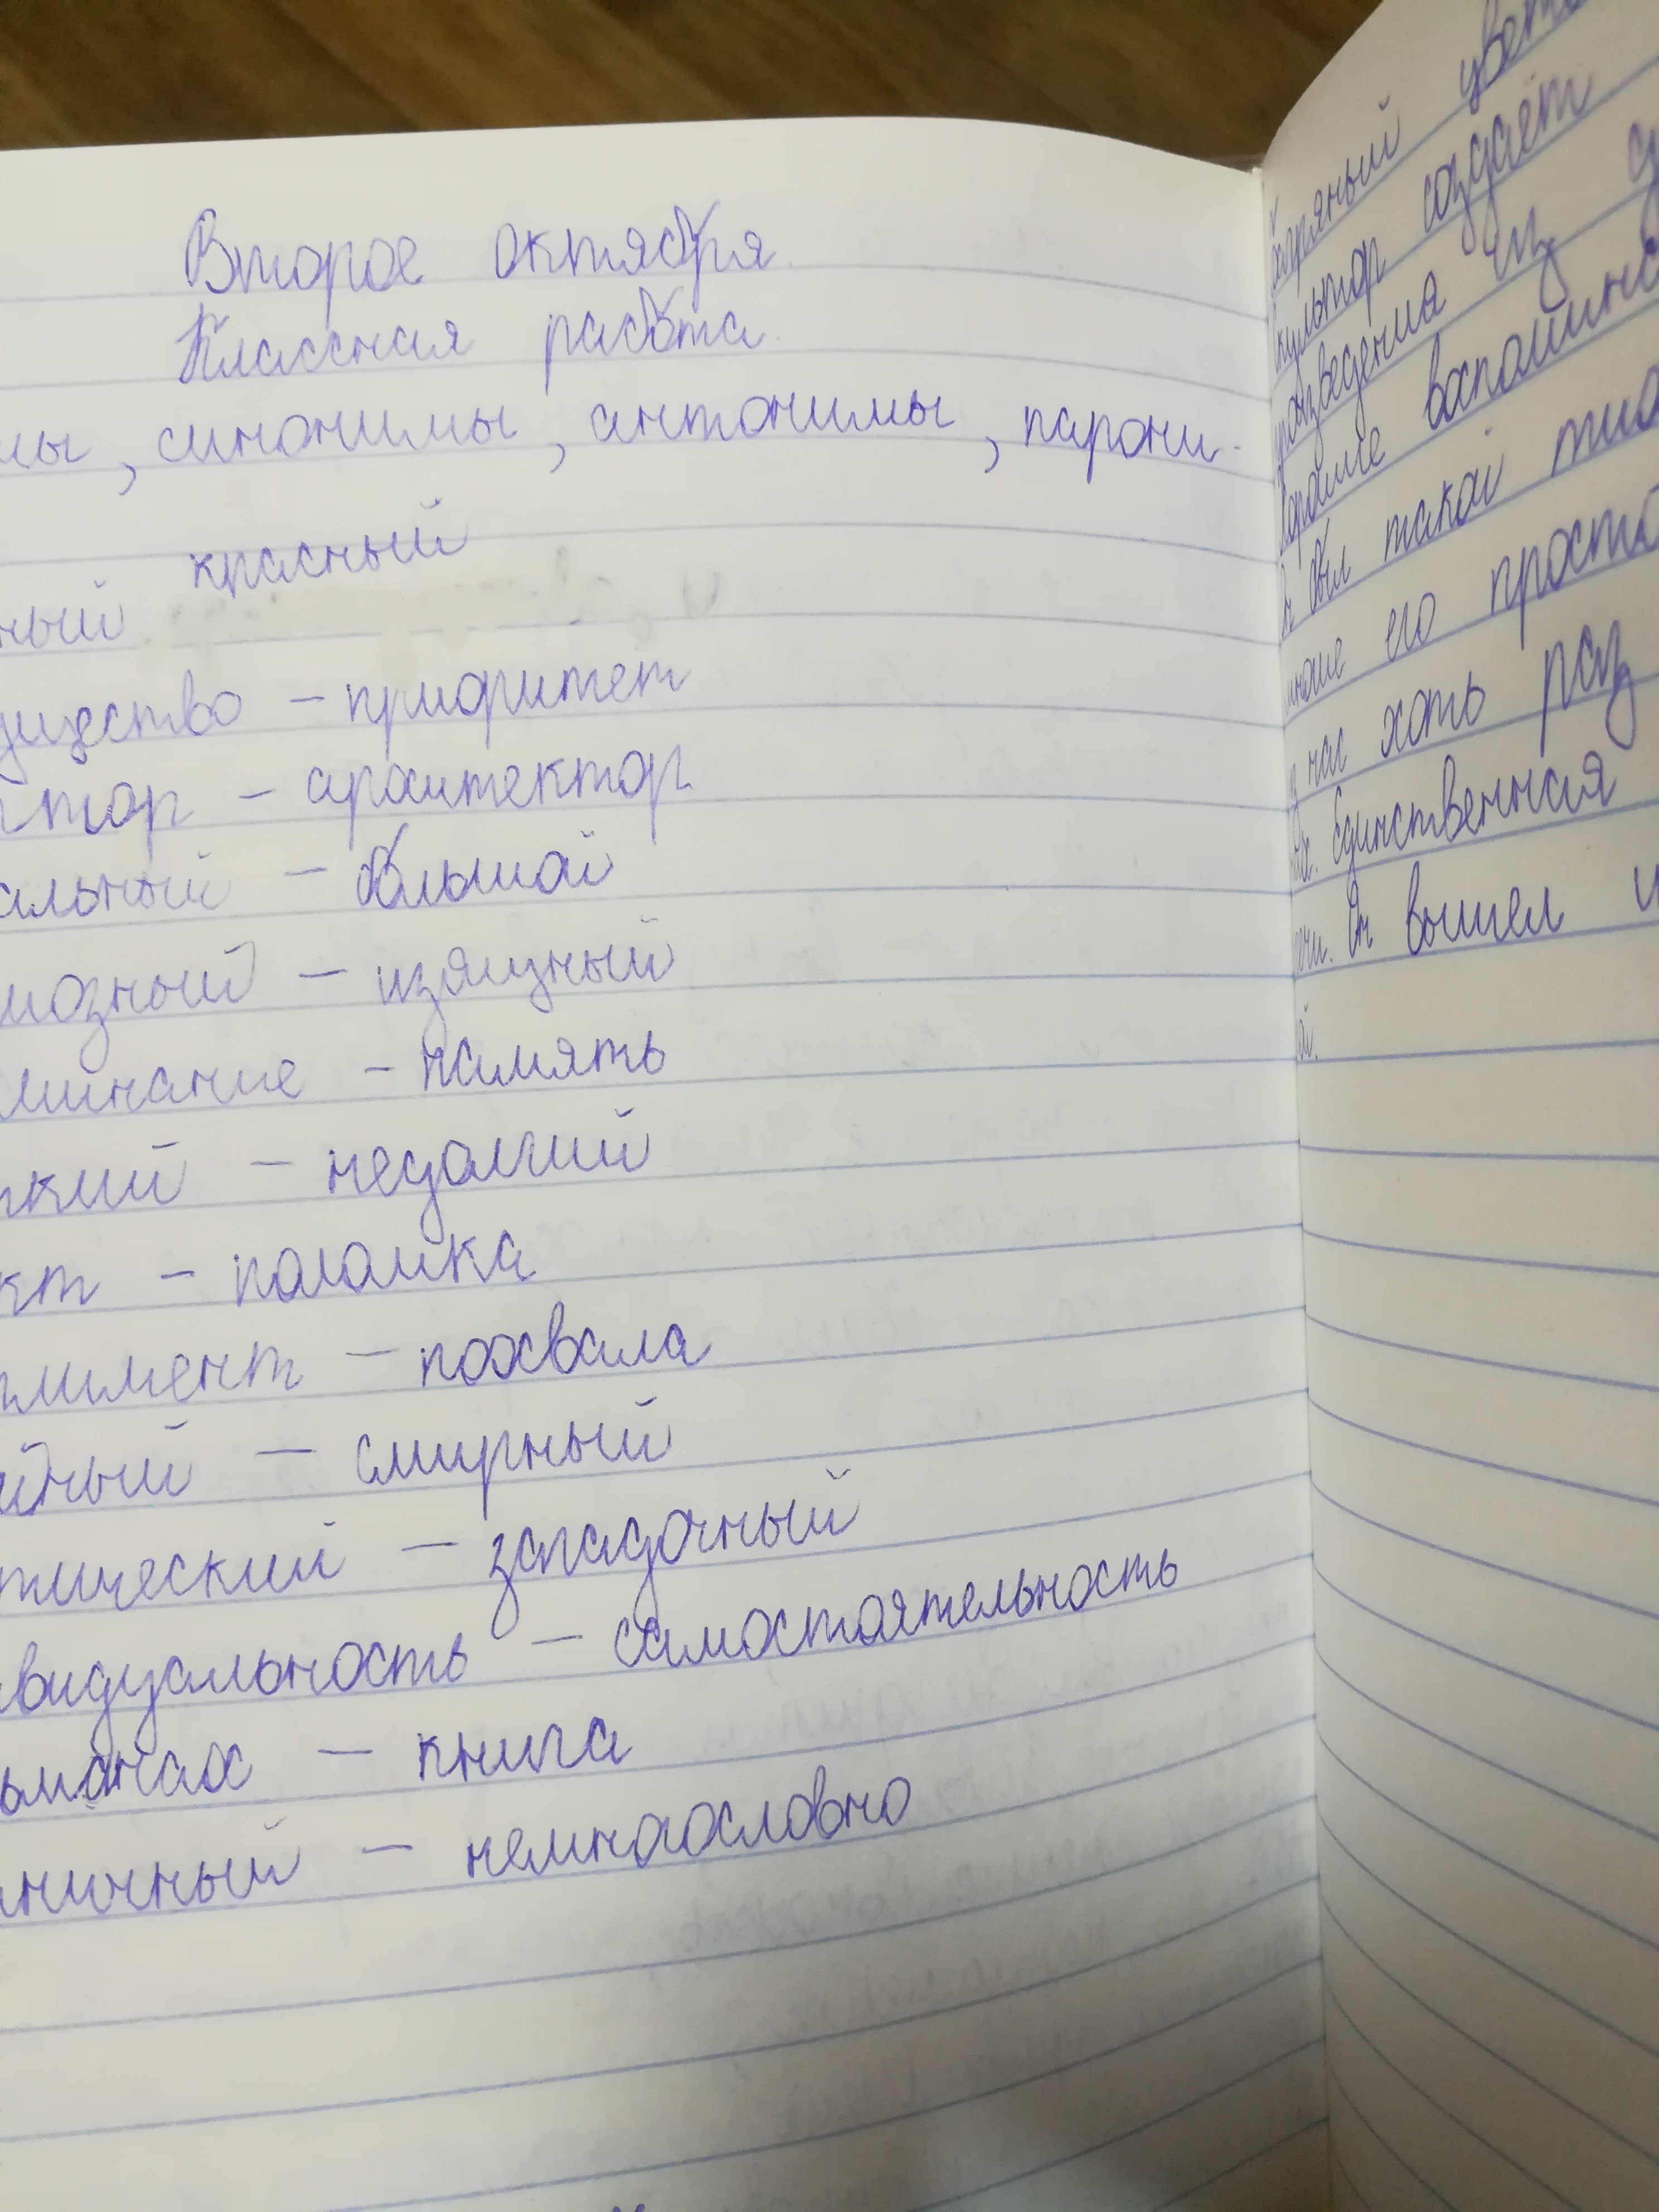 Второе октября
Классная работа
мы, синонимы, антонимы, парони-
красный
ный
ущество - приоритет
птор - архитектор
альный - большой
иозный - изящный
минание - память
ткий - недолгий
кт - поломка
плимент - похвала
йный - смирный
тический - загадочный
видуальность - самостоятельность
ьманах - книга
ничный - немногословно
багряный
скульптор создаёт
произведения из
хорошие воспомина
был такой
его просто
нас хоть раз
Единственная
Он вышел и
й.